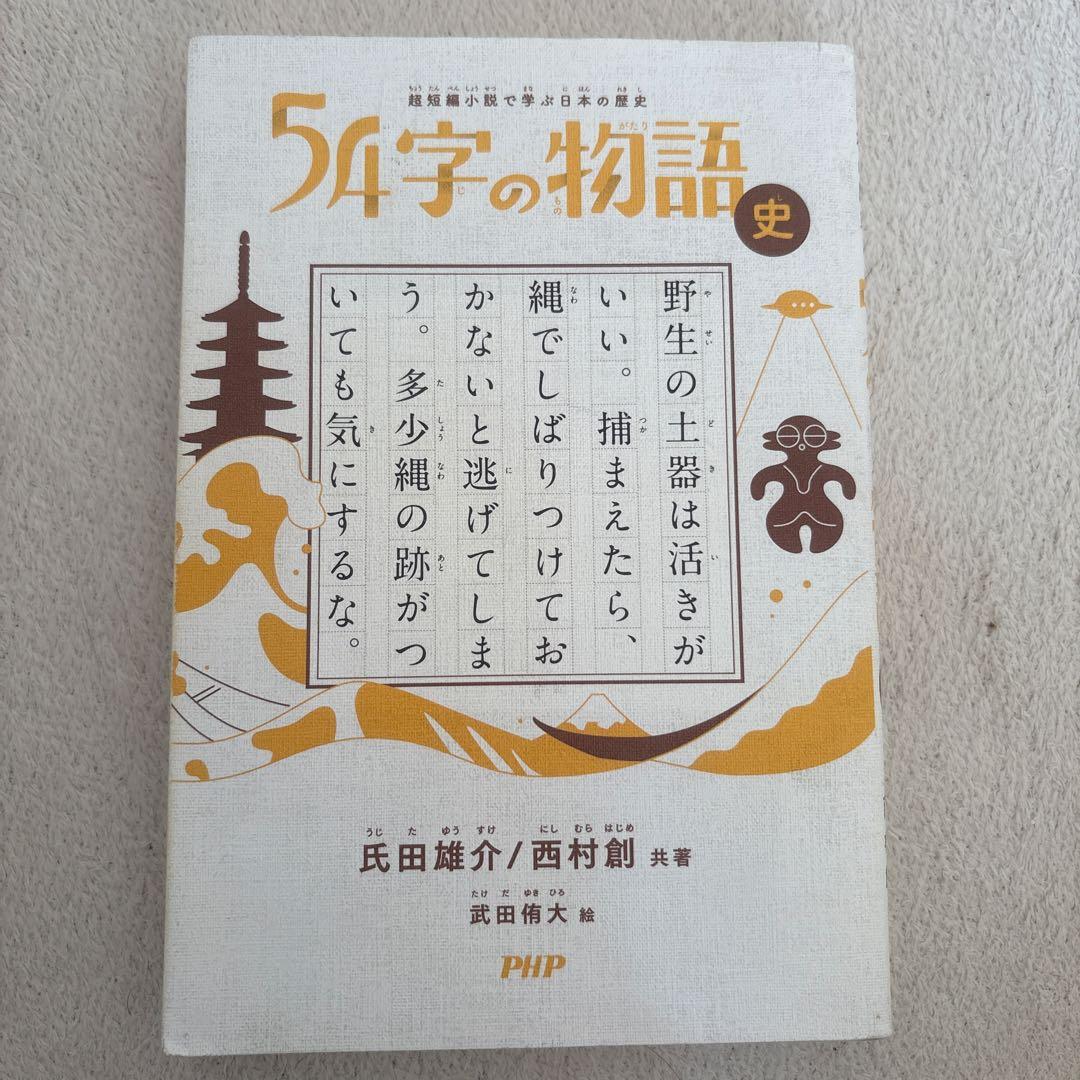 超短編小説で学ぶ日本の歴史
54字の物語 史
野生の土器は活きが
いい。捕まえたら、
縄でしばりつけてお
かないと逃げてしま
う。多少縄の跡がつ
いても気にするな。
氏田雄介/西村創 共著
武田侑大 絵
PHP